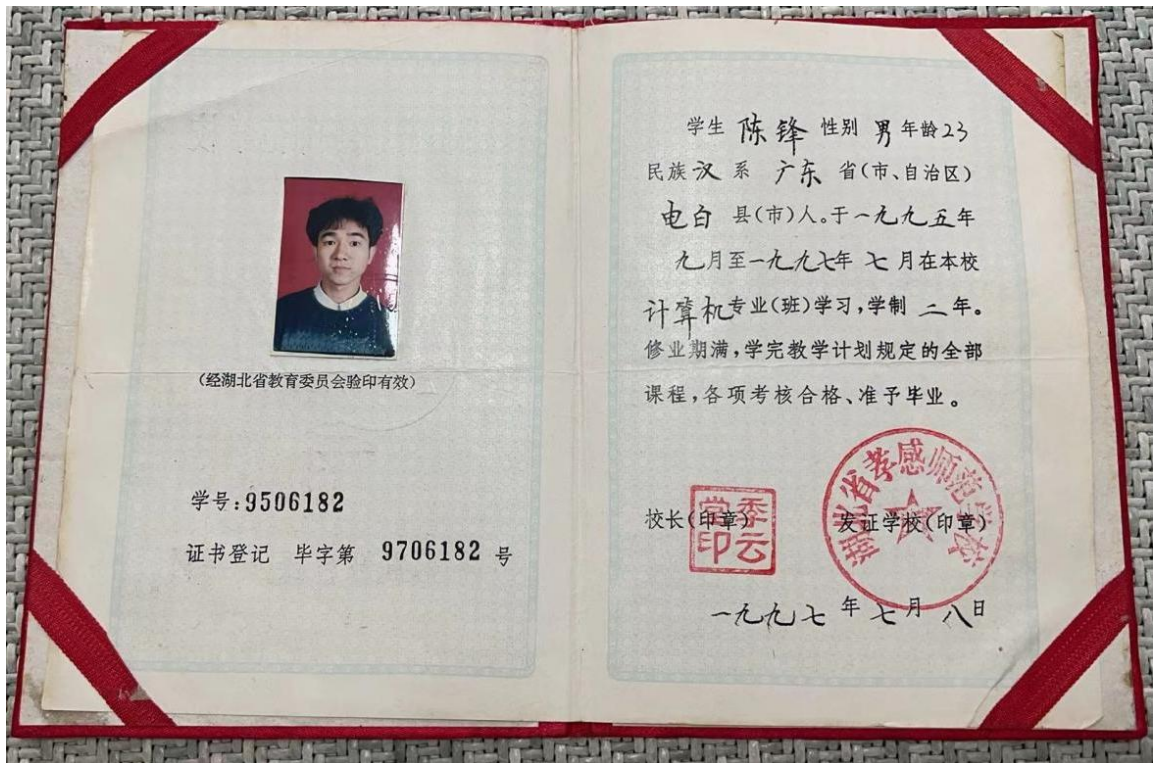 (经湖北省教育委员会验印有效)
学号:9506182
证书登记 毕字第 9706182 号
学生 陈锋 性别 男 年龄 23
民族 汉 系 广东 省(市、自治区)
电白 县(市)人。于一九九五年
九月至一九九七年 七月在本校
计算机专业(班)学习,学制 二年。
修业期满,学完教学计划规定的全部
课程,各项考核合格、准予毕业。
校长(印章)
季云堂印
发证学校(印章)
湖北省孝感师范学校
一九九七 年 七 月 八日